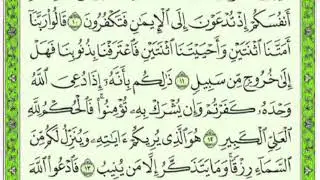 أَنفُسَكُمْ إِذْ تُدْعَوْنَ إِلَى ٱلْإِيمَٰنِ فَتَكْفُرُونَ ١٠ قَالُوا۟ رَبَّنَآ
أَمَتَّنَا ٱثْنَتَيْنِ وَأَحْيَيْتَنَا ٱثْنَتَيْنِ فَٱعْتَرَفْنَا بِذُنُوبِنَا فَهَلْ
إِلَىٰ خُرُوجٍ مِّن سَبِيلٍ ١١ ذَٰلِكُم بِأَنَّهُۥٓ إِذَا دُعِىَ ٱللَّهُ
وَحْدَهُۥ كَفَرْتُمْ وَإِن يُشْرَكْ بِهِۦ تُؤْمِنُوا۟ فَٱلْحُكْمُ لِلَّهِ
ٱلْعَلِىِّ ٱلْكَبِيرِ ١٢ هُوَ ٱلَّذِى يُرِيكُمْ ءَايَٰتِهِۦ وَيُنَزِّلُ لَكُم مِّنَ
ٱلسَّمَآءِ رِزْقًا وَمَا يَتَذَكَّرُ إِلَّا مَن يُنِيبُ ١٣ فَٱدْعُوا۟ ٱللَّهَ